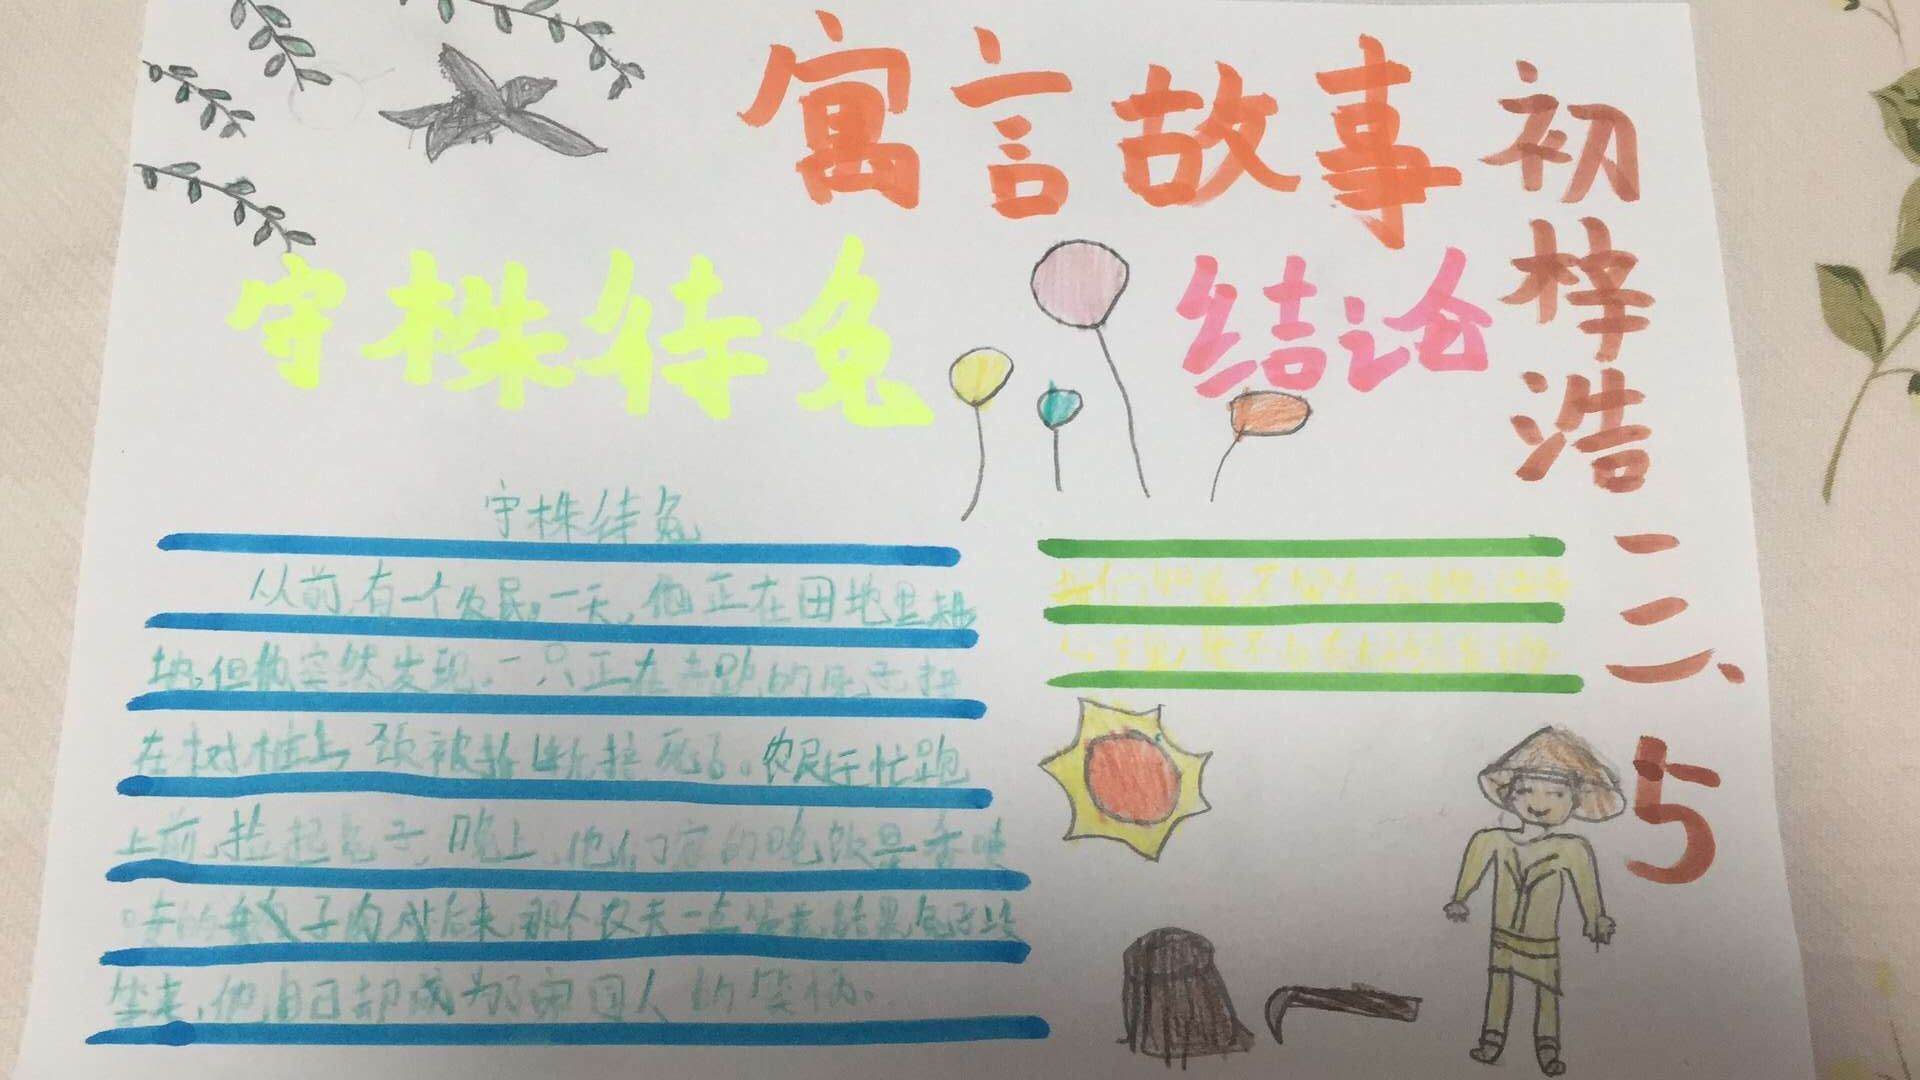 寓言故事
初梓浩
二、5
守株待兔
结论
守株待兔
从前，有一个农民。一天，他正在田地里耕
地，但他突然发现，一只正在走路的兔子撞
在树桩上，颈被折断撞死了。农民连忙跑
上前，捡起兔子，晚上，他们家的晚饭是香喷
喷的兔子肉，从后来，那个农夫一直等着，结果兔子没
等来，他自己却成为了宋国人的笑柄。